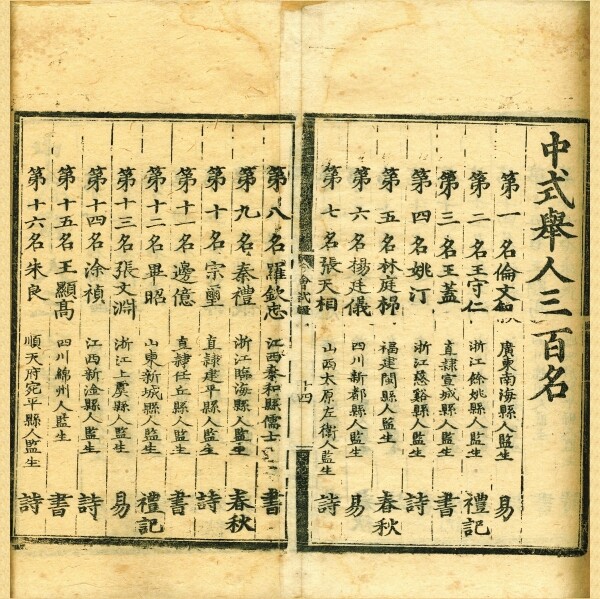 中式舉人三百名
第一名倫文叙 廣東南海縣人監生 易
第二名王守仁 浙江餘姚縣人監生 禮記
第三名王蓋 直隸宣城縣人監生 書
第四名姚汀 浙江慈谿縣人監生 詩
第五名林庭㭿 福建閩縣人監生 春秋
第六名楊廷儀 四川新都縣人監生 易
第七名張天相 山西太原左衛人監生 詩
會試錄 十四
第八名羅欽忠 江西泰和縣儒士 書
第九名秦禮 浙江臨海縣人監生 春秋
第十名宗璽 直隸建平縣人監生 詩
第十一名邊億 直隸任丘縣人監生 書
第十二名畢昭 山東新城縣人監生 禮記
第十三名張文淵 浙江上虞縣人監生 易
第十四名涂禎 江西新淦縣人監生 詩
第十五名王顯髙 四川綿州人監生 書
第十六名朱良 順天府宛平縣人監生 詩